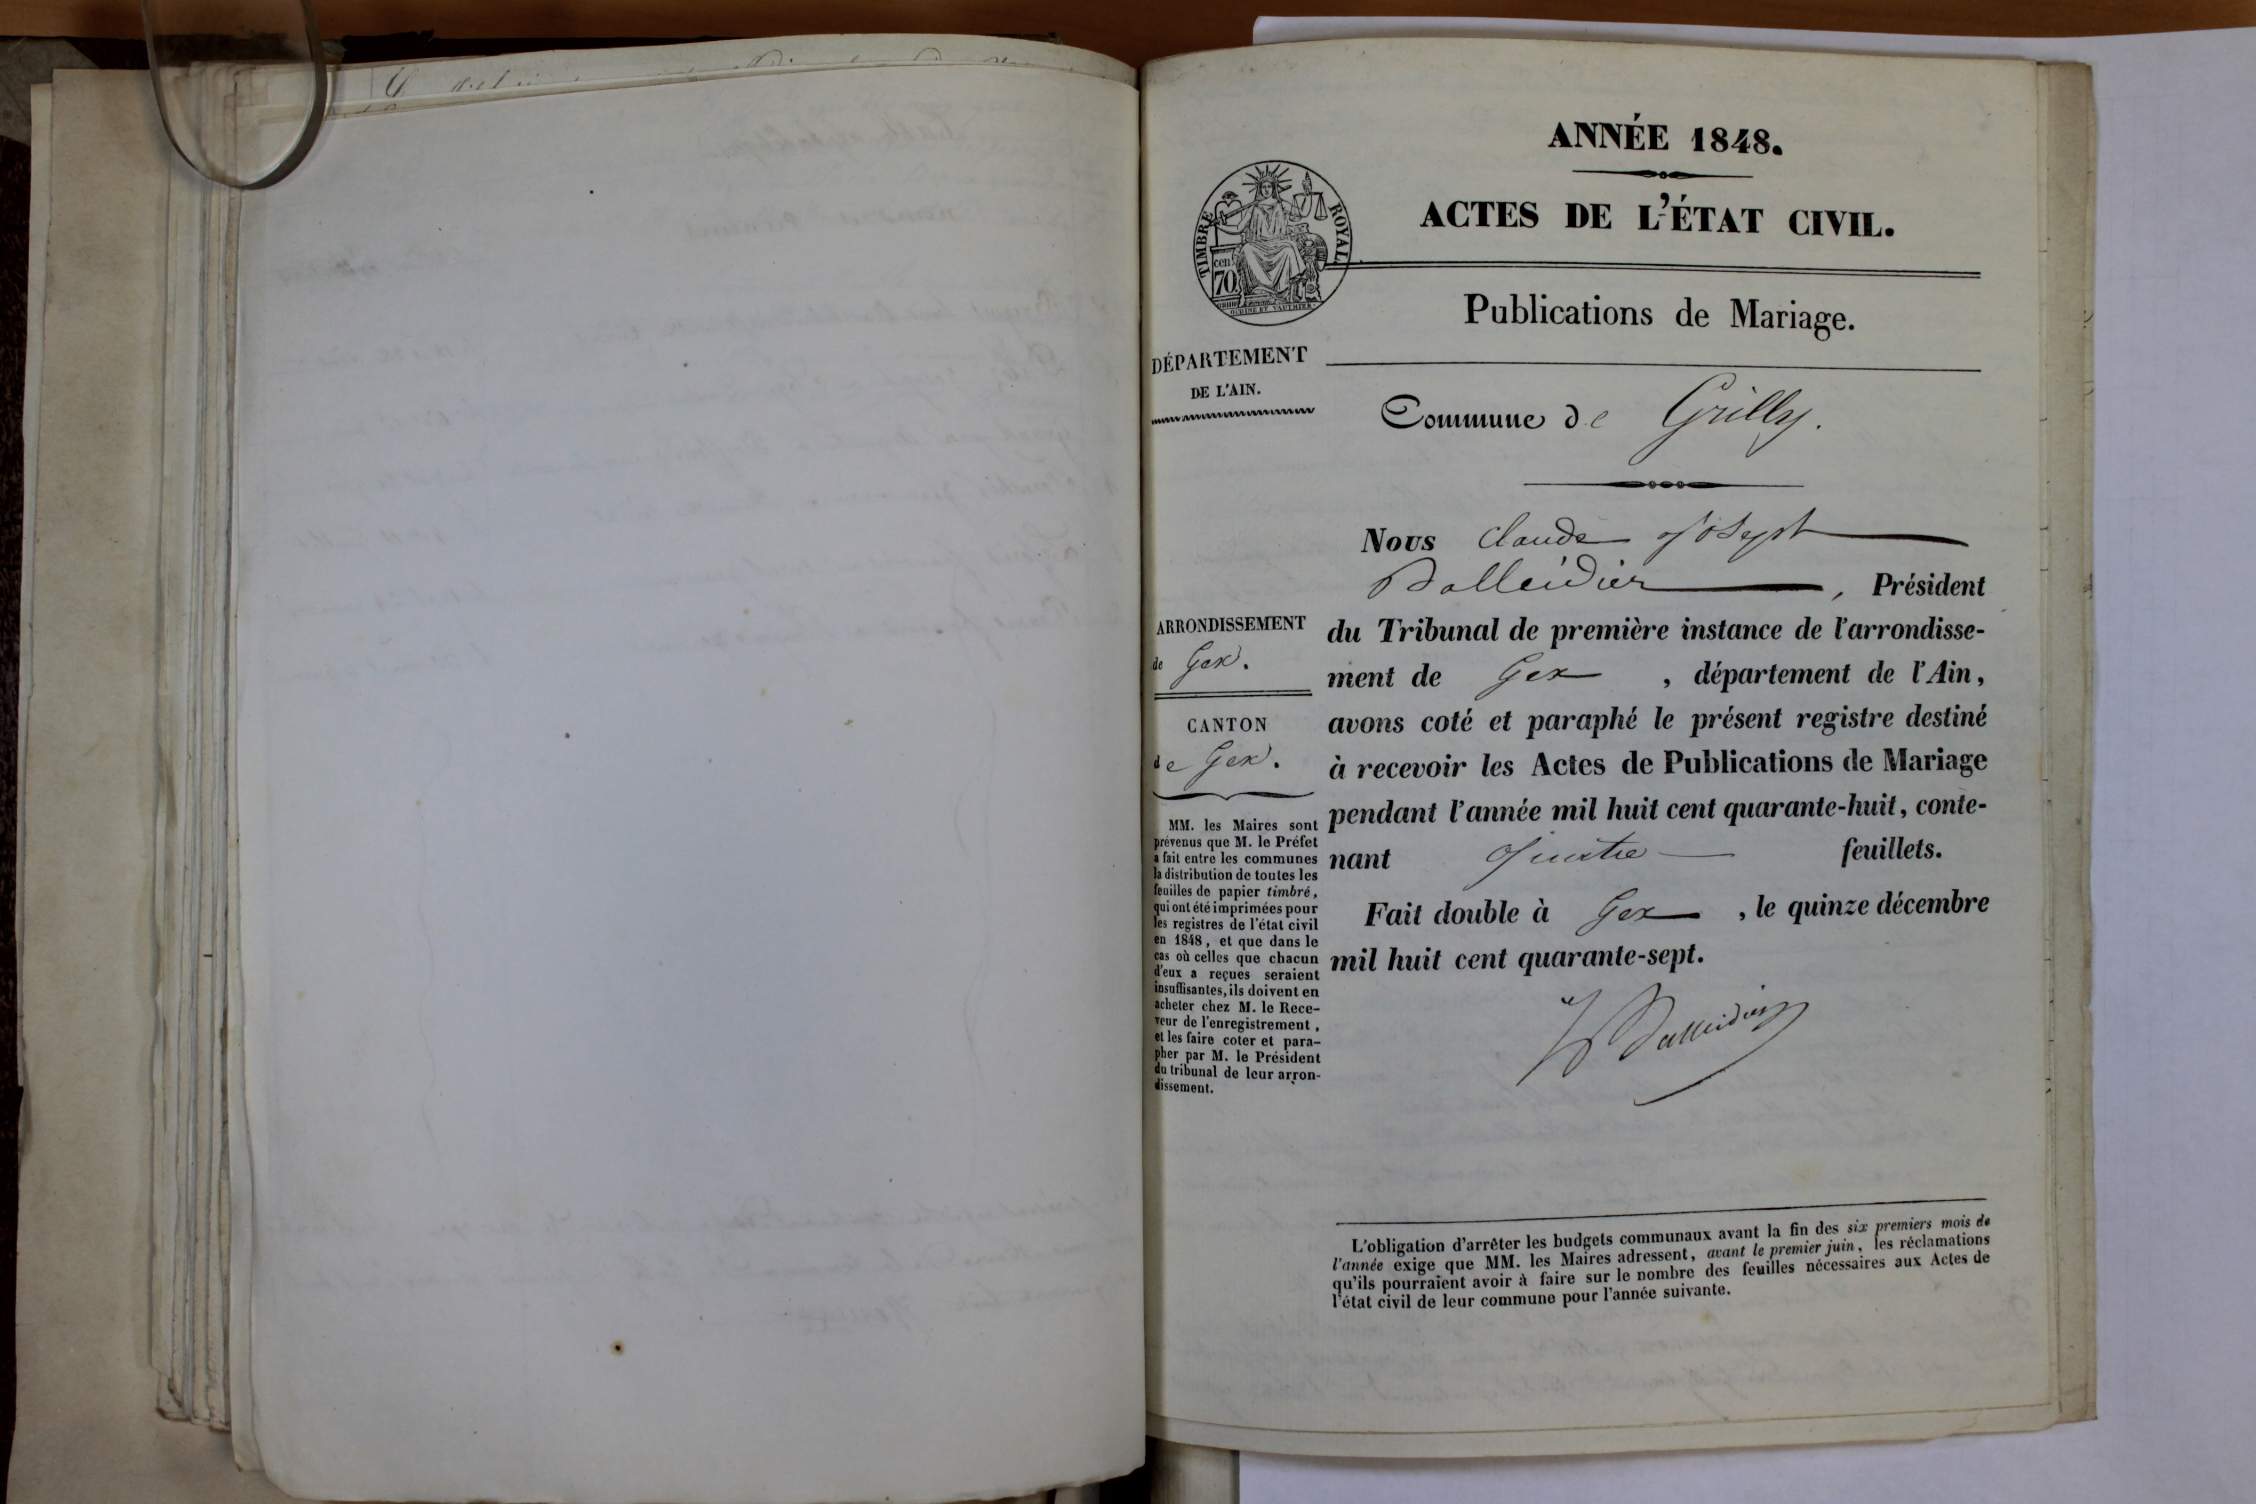 ANNÉE 1848.
ACTES DE L'ÉTAT CIVIL.
TIMBRE ROYAL
cen.
70.
Publications de Mariage.
DÉPARTEMENT
DE L'AIN.
Commune de Grilly.
ARRONDISSEMENT
de Gex.
CANTON
de Gex.
MM. les Maires sont
prévenus que M. le Préfet
a fait entre les communes
la distribution de toutes les
feuilles de papier timbré,
qui ont été imprimées pour
les registres de l'état civil
en 1848, et que dans le
cas où celles que chacun
d'eux a reçues seraient
insuffisantes, ils doivent en
acheter chez M. le Rece-
veur de l'enregistrement,
et les faire coter et para-
pher par M. le Président
du tribunal de leur arron-
dissement.
Nous Claude Joseph
Balleidier, Président
du Tribunal de première instance de l'arrondisse-
ment de Gex, département de l'Ain,
avons coté et paraphé le présent registre destiné
à recevoir les Actes de Publications de Mariage
pendant l'année mil huit cent quarante-huit, conte-
nant quatre feuillets.
Fait double à Gex, le quinze décembre
mil huit cent quarante-sept.
Balleidier
L'obligation d'arrêter les budgets communaux avant la fin des six premiers mois de
l'année exige que MM. les Maires adressent, avant le premier juin, les réclamations
qu'ils pourraient avoir à faire sur le nombre des feuilles nécessaires aux Actes de
l'état civil de leur commune pour l'année suivante.